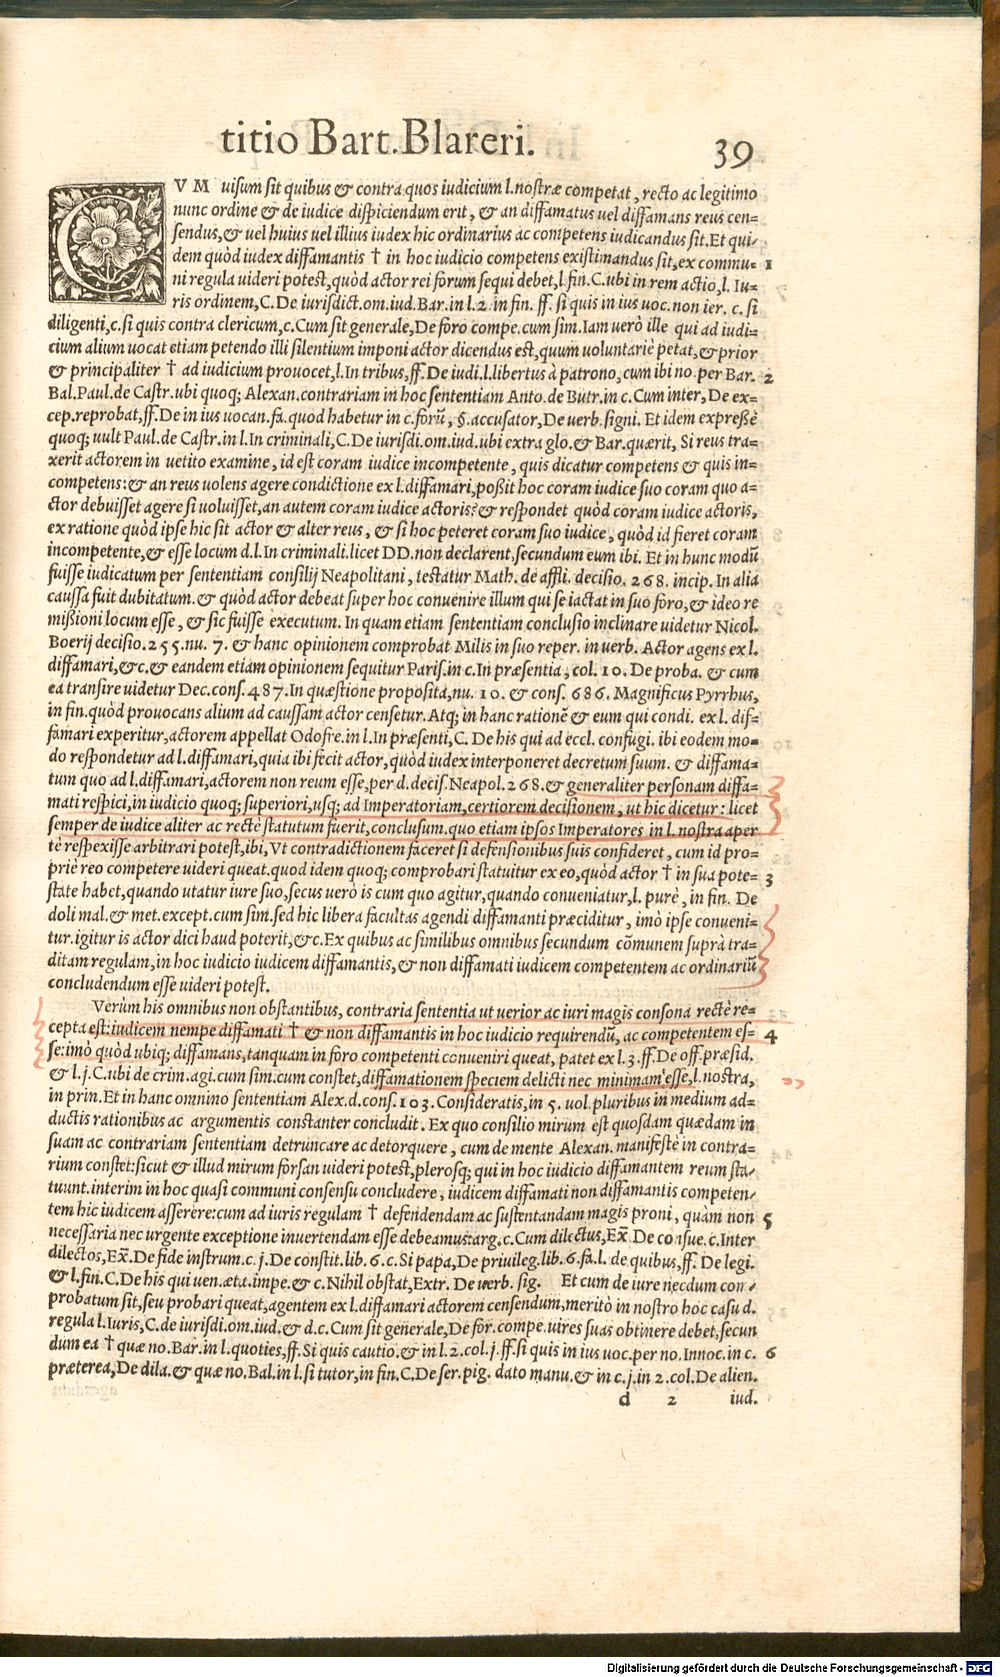 titio Bart. Blareri. 39
CVM uisum sit quibus & contra quos iudicium l. nostræ competat, recto ac legitimo
nunc ordine & de iudice dispiciendum erit, & an diffamatus uel diffamans reus cen=
sendus, & uel huius uel illius iudex hic ordinarius ac competens iudicandus sit. Et qui/
dem quòd iudex diffamantis † in hoc iudicio competens existimandus sit, ex commu= 1
ni regula uideri potest, quòd actor rei forum sequi debet, l. fin. C. ubi in rem actio, l. Iu=
ris ordinem, C. De iurisdict. om. iud. Bar. in l. 2. in fin. ff. si quis in ius uoc. non ier. c. si
diligenti, c. si quis contra clericum, c. Cum sit generale, De foro compe. cum sim. Iam uerò ille qui ad iudi=
cium alium uocat etiam petendo illi silentium imponi actor dicendus est, quum voluntariè petat, & prior
& principaliter † ad iudicium prouocet, l. In tribus, ff. De iudi. l. libertus à patrono, cum ibi no. per Bar. 2
Bal. Paul. de Castr. ubi quoq; Alexan. contrariam in hoc sententiam Anto. de Butr. in c. Cum inter, De ex=
cep. reprobat, ff. De in ius uocan. fa. quod habetur in c. forũ, §. accusator, De uerb. signi. Et idem expreßè
quoq; uult Paul. de Castr. in l. In criminali, C. De iurisdi. om. iud. ubi extra glo. & Bar. quærit, Si reus tra=
xerit actorem in uetito examine, id est coram iudice incompetente, quis dicatur competens & quis in=
competens: & an reus uolens agere condictione ex l. diffamari, poßit hoc coram iudice suo coram quo a=
ctor debuisset agere si uoluisset, an autem coram iudice actoris? & respondet quòd coram iudice actoris,
ex ratione quòd ipse hic sit actor & alter reus, & si hoc peteret coram suo iudice, quòd id fieret coram
incompetente, & esse locum d. l. In criminali. licet DD. non declarent, secundum eum ibi. Et in hunc modũ
fuisse iudicatum per sententiam consilij Neapolitani, testatur Math. de affli. decisio. 268. incip. In alia
caussa fuit dubitatum. & quòd actor debeat super hoc conuenire illum qui se iactat in suo foro, & ideo re
mißioni locum esse, & sic fuisse executum. In quam etiam sententiam conclusio inclinare uidetur Nicol.
Boerij decisio. 255. nu. 7. & hanc opinionem comprobat Milis in suo reper. in uerb. Actor agens ex l.
diffamari, &c. & eandem etiam opinionem sequitur Paris. in c. In præsentia, col. 10. De proba. & cum
ea transire uidetur Dec. cons. 487. In quæstione proposita, nu. 10. & cons. 686. Magnificus Pyrrhus,
in fin. quòd prouocans alium ad caussam actor censetur. Atq; in hanc rationẽ & eum qui condi. ex l. dif=
famari experitur, actorem appellat Odofre. in l. In præsenti, C. De his qui ad eccl. confugi. ibi eodem mo=
do respondetur ad l. diffamari, quia ibi fecit actor, quòd iudex interponeret decretum suum. & diffama=
tum quo ad l. diffamari, actorem non reum esse, per d. decis. Neapol. 268. & generaliter personam diffa=
mati respici, in iudicio quoq; superiori, usq; ad Imperatoriam, certiorem decisionem, ut hic dicetur: licet
semper de iudice aliter ac rectè statutum fuerit, conclusum. quo etiam ipsos Imperatores in l. nostra aper
tè respexisse arbitrari potest, ibi, Vt contradictionem faceret si defensionibus suis confideret, cum id pro=
priè reo competere uideri queat. quod idem quoq; comprobari statuitur ex eo, quòd actor † in sua pote= 3
state habet, quando utatur iure suo, secus uerò is cum quo agitur, quando conueniatur, l. purè, in fin. De
doli mal. & met. except. cum sim. sed hic libera facultas agendi diffamanti præciditur, imò ipse conueni=
tur. igitur is actor dici haud poterit, &c. Ex quibus ac similibus omnibus secundum cõmunem suprà tra=
ditam regulam, in hoc iudicio iudicem diffamantis, & non diffamati iudicem competentem ac ordinariũ
concludendum esse uideri potest.
Verùm his omnibus non obstantibus, contraria sententia ut uerior ac iuri magis consona rectè re=
cepta est: iudicem nempe diffamati † & non diffamantis in hoc iudicio requirendũ, ac competentem es= 4
se: imò quòd ubiq; diffamans, tanquam in foro competenti conueniri queat, patet ex l. 3. ff. De off. præsid.
& l. j. C. ubi de crim. agi. cum sim. cum constet, diffamationem speciem delicti nec minimam esse, l. nostra,
in prin. Et in hanc omnino sententiam Alex. d. cons. 103. Consideratis, in 5. uol. pluribus in medium ad=
ductis rationibus ac argumentis constanter concludit. Ex quo consilio mirum est quosdam quædam in
suam ac contrariam sententiam detruncare ac detorquere, cum de mente Alexan. manifestè in contra=
rium constet: sicut & illud mirum forsan uideri potest, plerosq; qui in hoc iudicio diffamantem reum sta/
tuunt. interim in hoc quasi communi consensu concludere, iudicem diffamati non diffamantis competen/
tem hic iudicem asserere: cum ad iuris regulam † defendendam ac sustentandam magis proni, quàm non 5
necessaria nec urgente exceptione inuertendam esse debeamus: arg. c. Cum dilectus, Ex̃. De consue. c. Inter
dilectos, Ex̃. De fide instrum. c. j. De constit. lib. 6. c. Si papa, De priuileg. lib. 6. fa. l. de quibus, ff. De legi.
& l. fin. C. De his qui uen. æta. impe. & c. Nihil obstat, Extr. De uerb. sig. Et cum de iure necdum com/
probatum sit, seu probari queat, agentem ex l. diffamari actorem censendum, meritò in nostro hoc casu d.
regula l. Iuris, C. de iurisdi. om. iud. & d. c. Cum sit generale, De for. compe. uires suas obtinere debet, secun
dum ea † quæ no. Bar. in l. quoties, ff. Si quis cautio. & in l. 2. col. j. ff. si quis in ius uoc. per no. Innoc. in c. 6
præterea, De dila. & quæ no. Bal. in l. si tutor, in fin. C. De ser. pig. dato manu. & in c. j. in 2. col. De alien.
d 2 iud.
Digitalisierung gefördert durch die Deutsche Forschungsgemeinschaft - DFG